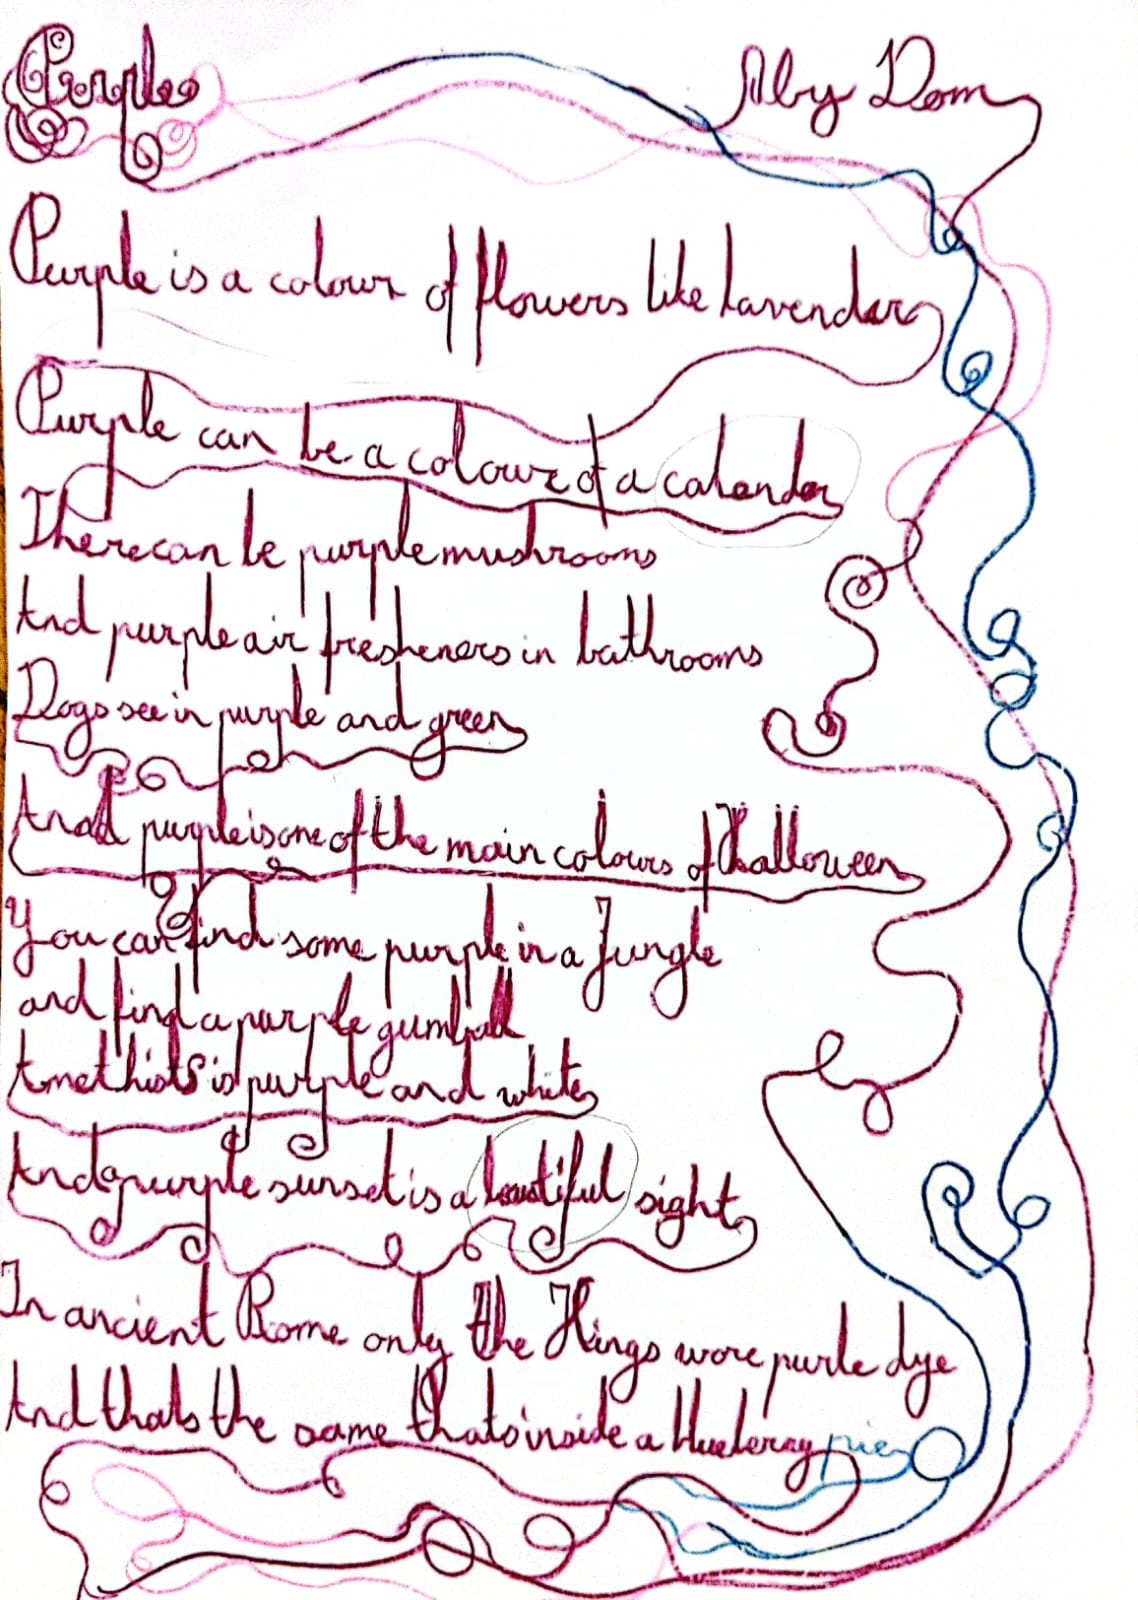 Purple
Aby Dom
Purple is a colour of flowers like lavender
Purple can be a colour of a calendar
There can be purple mushrooms
And purple air fresheners in bathrooms
Dogs see in purple and green
And purple is one of the main colours of Halloween
You can find some purple in a Jungle
and find a purple gumball
is purple and white
And a purple sunset is a beautiful sight
In ancient Rome only the Kings wore purle dye
And thats the same thats inside a blueberry pie